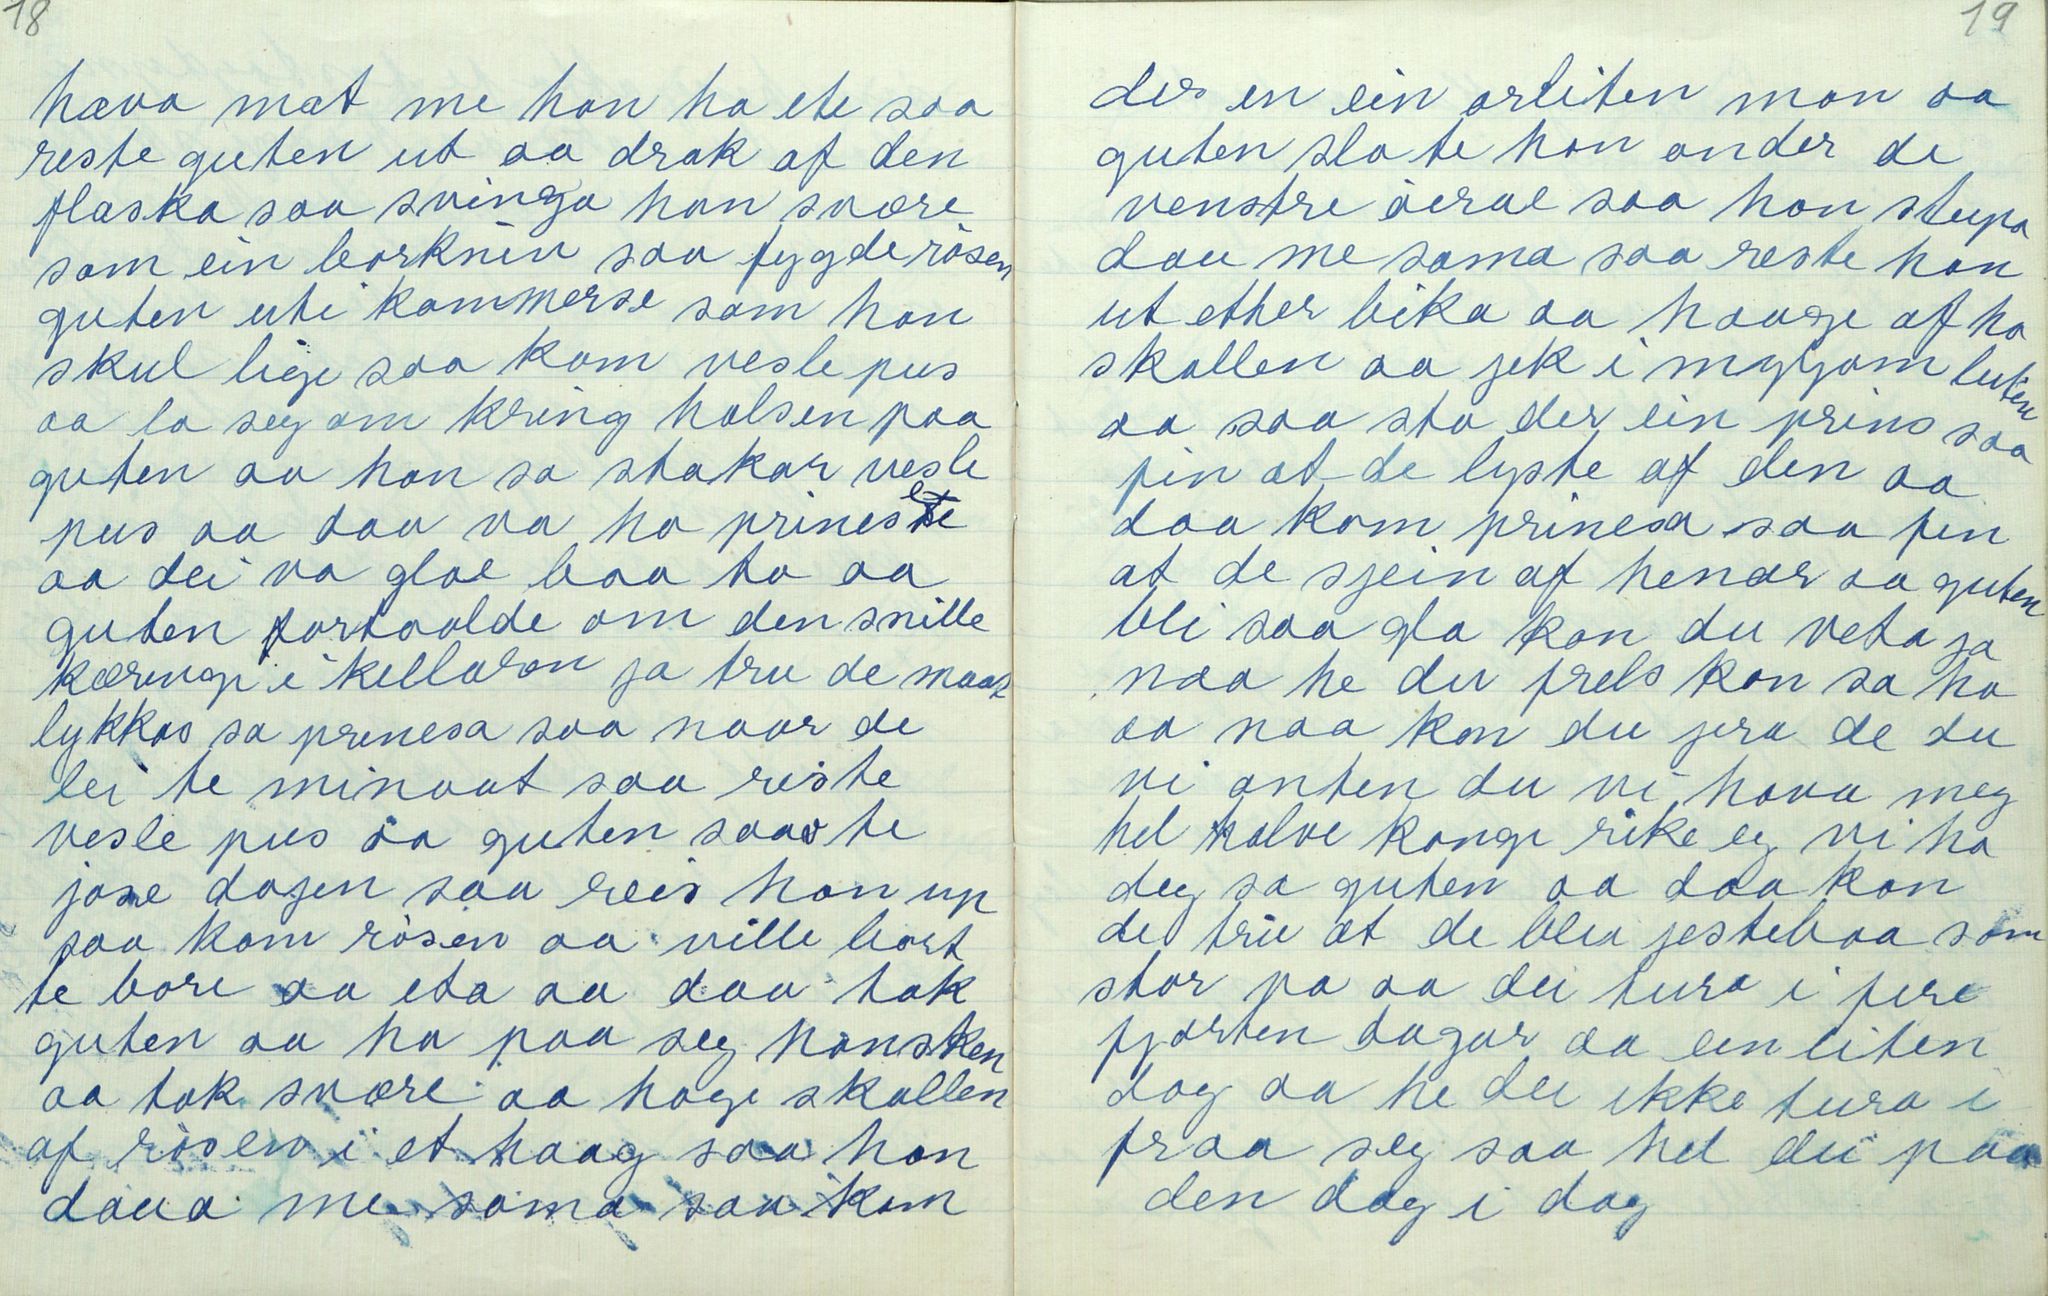 18
hæva mat me han ha ete saa
reste guten ut aa drak af den
flaska saa svinga han svære
som ein borknin saa fygde risen
guten uti kammerse som han
skul ligi saa kom vesle pus
aa la seg om kring halsen paa
guten aa han sa stakar vesle
pus aa daa va ho prinesse
aa dei va glae baa to aa
guten fortaalde om den snille
kæringi i kellaron ja tru de maat
lykkas sa prinesa saa naar de
lei te minaat saa reiste
vesle pus aa guten saav te
jose dagen saa reis han up
saa kom risen aa ville bort
te bore aa eta aa daa tok
guten aa ha paa seg hansken
aa tok svære aa hogi skallen
af risen i et haag saa han
daua me sama saa kom
19
der en ein orliten man aa
guten slo te han onder de
venstre öerae saa han stupa
dau me sama saa reste han
ut etter bika aa haage af ho
skallen aa jek i myjom luten
aa saa sto der ein prins saa
fin at de lyste af den aa
daa kom prinesa saa fin
at de sjein af henar aa guten
bli saa gla kan du veta ja
naa he du frels kan sa ho
aa naa kan du jera de du
vi anten du vi hava meg
hel halve kongi rike eg vi ha
deg sa guten aa daa kan
de tru at de blei jestebaa som
stor va aa dei tura i fire
fjorten dagar aa ein liten
dag aa he dei ikke tura i
fraa seg saa hel dei paa
den dag i dag